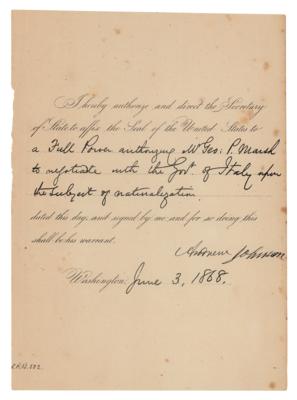 I hereby authorize and direct the Secretary
of State to affix the Seal of the United States to
a Full Power authorizing Mr Geo: P. Marsh
to negotiate with the Gov't. of Italy upon
the subject of naturalization.
dated this day, and signed by me and for so doing this
shall be his warrant.
Andrew Johnson
Washington, June 3, 1868.